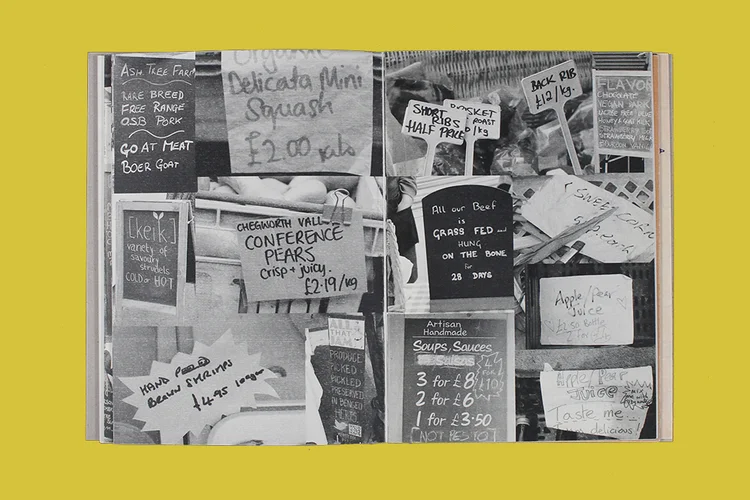 ASH TREE FARM
RARE BREED
FREE RANGE
O.S.B PORK
GOAT MEAT
BOER GOAT
Organic
Delicata Mini
Squash
£2.00 kilo
SHORT
RIBS
HALF PRICE
BRISKET
ROAST
/kg
BACK RIB
£12/kg.
FLAVO
CHOCOLATE
VEGAN DARK
[keik]
variety of
savoury
strudels
COLD or HOT
CHEGWORTH VALL
CONFERENCE
PEARS
crisp + juicy.
£2.19/kg
All our Beef
is
GRASS FED and
HUNG
ON THE BONE
for
28 DAYS
SWEETCORN
HAND PEELED
BROWN SHRIMPS
£4.95 100gr
ALL
THAT
JAM
PRODUCE
PICKED
PICKLED
PRESERVED
IN
HERTS
Artisan
Handmade
Soups, Sauces
& Salsas
3 for £8
2 for £6
1 for £3.50
[NOT PESTO]
Apple/Pear
Juice
Bottle
Apple/Pear
JUICE
Taste me...
I'm delicious!